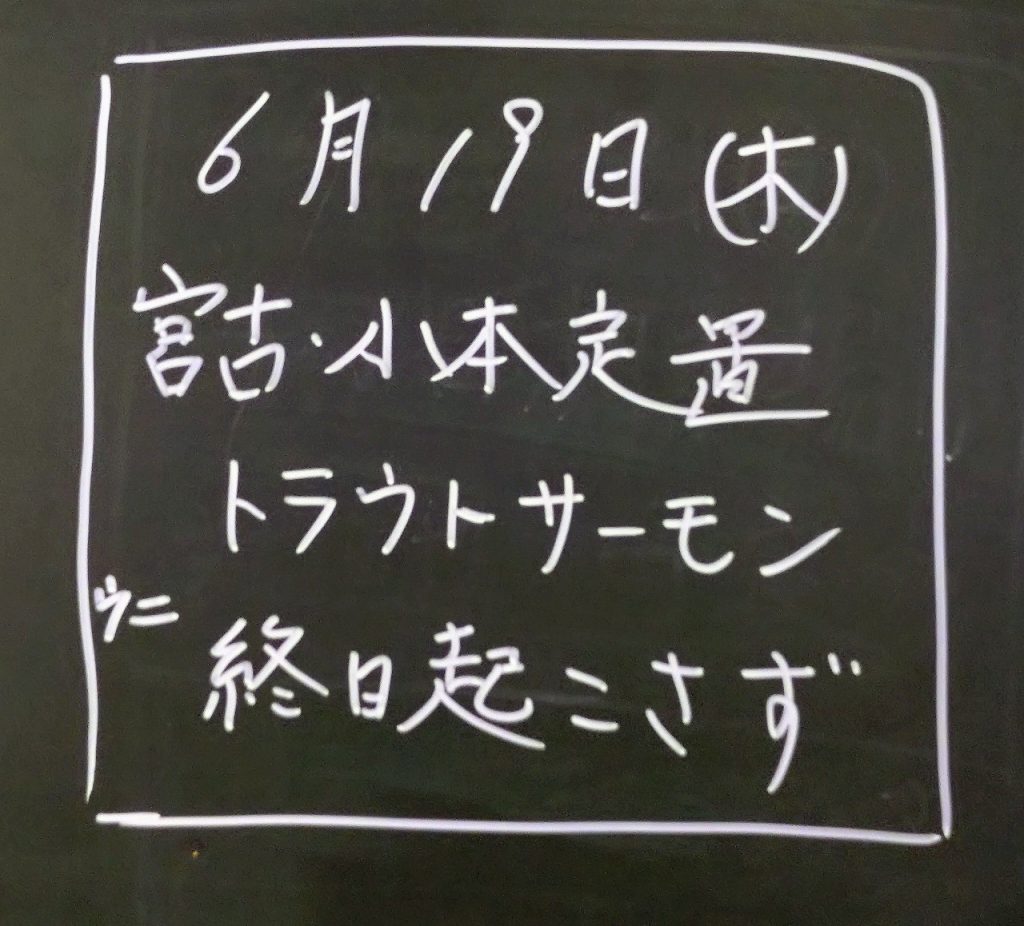 6月19日(木)
宮古・小本定置
トラウトサーモン
ウニ
終日起こさず